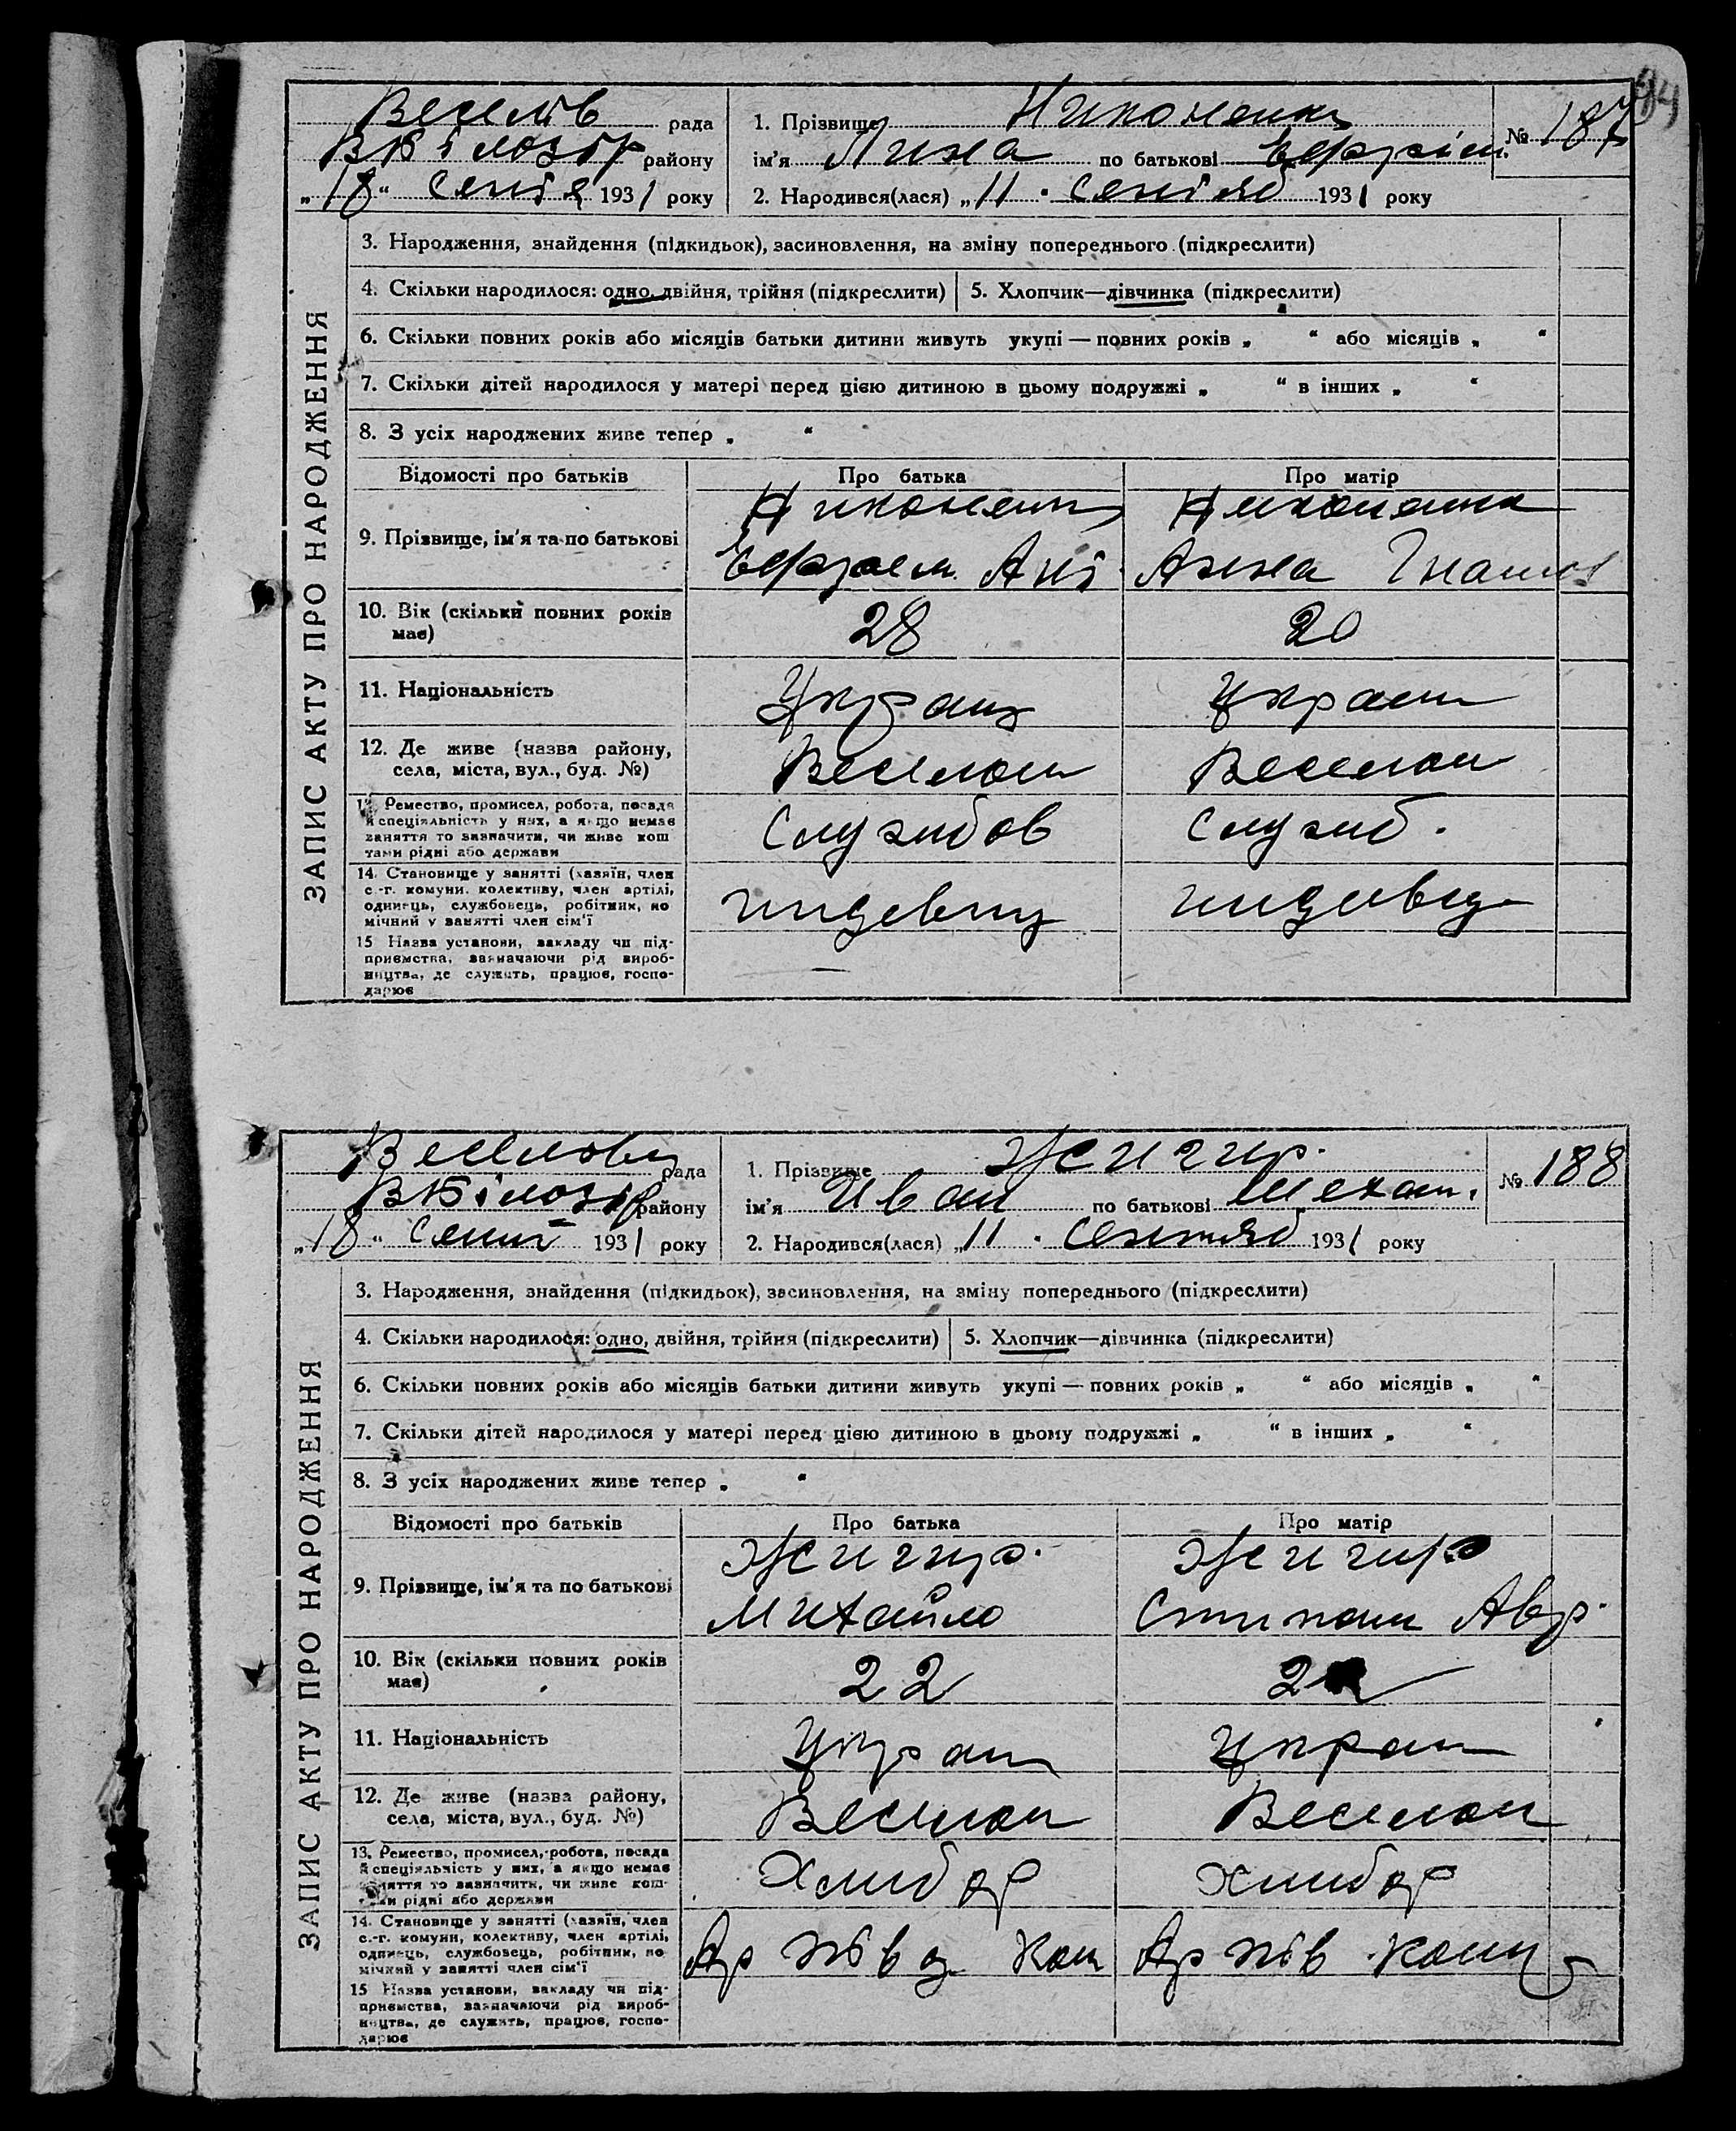 94
Веселів рада
ВБілозір району
„18“ Сентя 1931 року
1. Прізвище Никоненко
ім'я Лина по батькові Єфрзім.
№ 187
2. Народився(лася) „11 . Сентяб 1931 року
ЗАПИС АКТУ ПРО НАРОДЖЕННЯ
3. Народження, знайдення (підкидьок), засиновлення, на зміну попереднього (підкреслити)
4. Скільки народилося: одно, двійня, трійня (підкреслити) 5. Хлопчик—дівчинка (підкреслити)
6. Скільки повних років або місяців батьки дитини живуть укупі — повних років „ “ або місяців „ “
7. Скільки дітей народилося у матері перед цією дитиною в цьому подружжі „ “ в інших „ “
8. З усіх народжених живе тепер „ “
Відомості про батьків Про батька Про матір
9. Прізвище, ім'я та по батькові
Никоненко Никоненко
Анна Гнатов
10. Вік (скільки повних років має) 28 20
11. Національність Украин Украин
12. Де живе (назва району,
села, міста, вул., буд. №) Веселом Веселом
13. Ремество, промисел, робота, посада
й спеціяльність у них, а якщо немає
заняття то зазначити, чи живе кош
тами рідні або держави
Службов Служб.
14. Становище у занятті (хазяїн, член
с.-г. комуни, колективу, член артілі,
одинець, службовець, робітник, по
мічний у занятті член сім'ї
индевид индивид
15 Назва установи, закладу чи під-
приємства, зазначаючи рід вироб-
ництва, де служить, працює, госпо-
дарює
—
Веселов рада
ВБілозір району
„18“ Сент 1931 року
1. Прізвище Жигир.
ім'я Иван по батькові Михаил.
№ 188
2. Народився(лася) „11 . Сентяб 1931 року
ЗАПИС АКТУ ПРО НАРОДЖЕННЯ
3. Народження, знайдення (підкидьок), засиновлення, на зміну попереднього (підкреслити)
4. Скільки народилося: одно, двійня, трійня (підкреслити) 5. Хлопчик—дівчинка (підкреслити)
6. Скільки повних років або місяців батьки дитини живуть укупі — повних років „ “ або місяців „ “
7. Скільки дітей народилося у матері перед цією дитиною в цьому подружжі „ “ в інших „ “
8. З усіх народжених живе тепер „ “
Відомості про батьків Про батька Про матір
9. Прізвище, ім'я та по батькові
Жигир. Жигир
Михайло Авр.
10. Вік (скільки повних років має) 22
11. Національність Украин Украин
12. Де живе (назва району,
села, міста, вул., буд. №) Веселом Веселом
13. Ремество, промисел, робота, посада
й спеціяльність у них, а якщо немає
заняття то зазначити, чи живе кош-
тами рідні або держави
Хлибор Хлибор
14. Становище у занятті (хазяїн, член
с.-г. комуни, колективу, член артілі,
одинець, службовець, робітник, по
мічний у занятті член сім'ї
15 Назва установи, закладу чи під-
приємства, зазначаючи рід вироб-
ництва, де служить, працює, госпо-
дарює